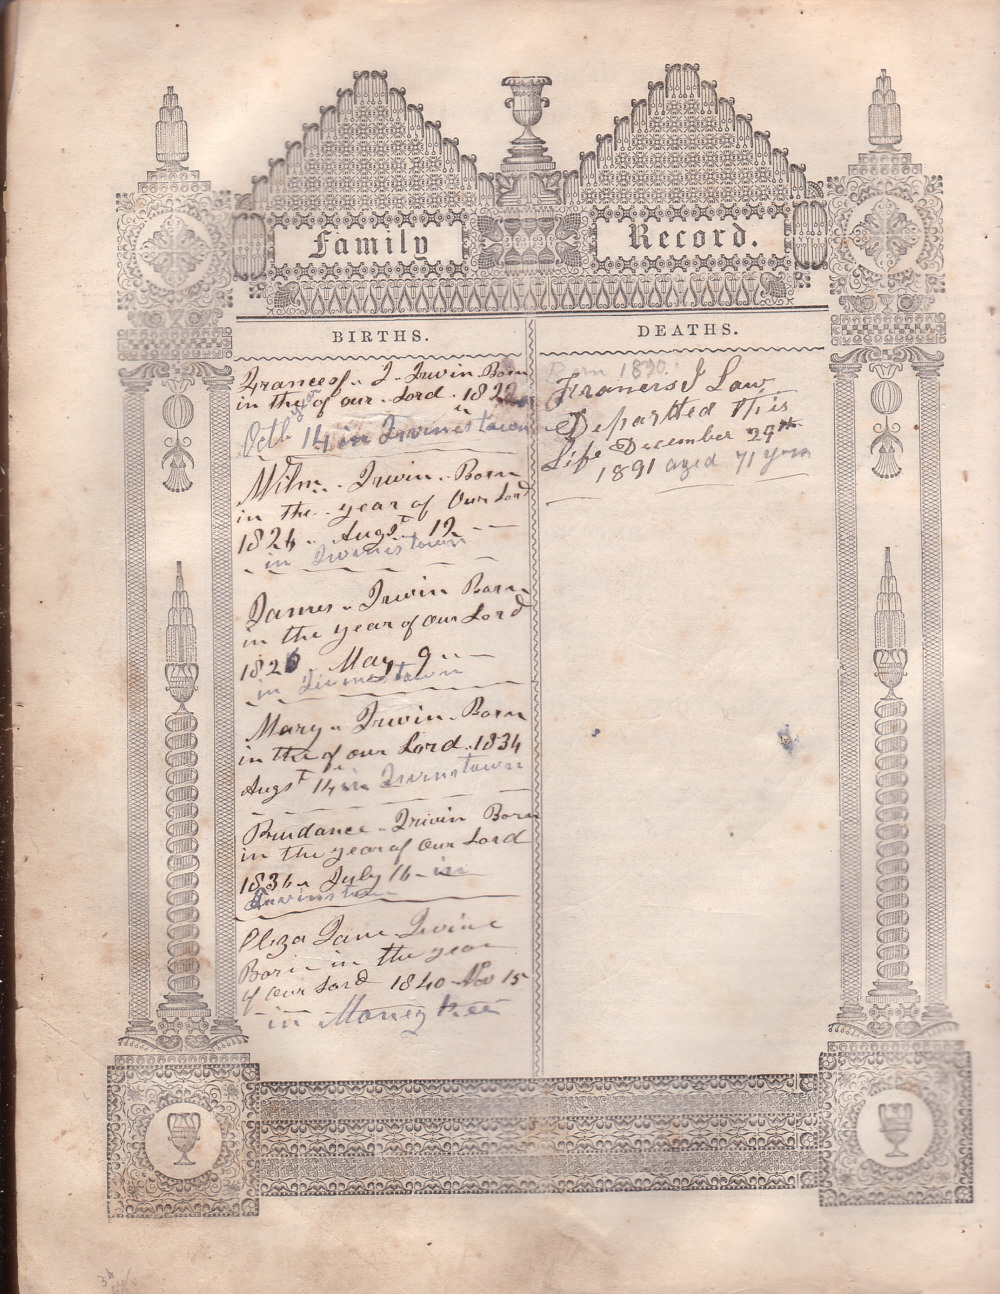 Family Record.
BIRTHS.
Francesf. J. Irwin Born
in the year of our Lord 1822
Octb 14 in Irvinestown
Wilm. Irwin Born
in the year of Our Lord
1824 Augst 12
in Irvinestown
James Irwin Born
in the year of our Lord
1826 May 9
in Irvinestown
Mary Irwin Born
in the of our Lord 1834
Augst 14 in Irvinestown
Prudance Irwin Born
in the year of Our Lord
1836 July 16 in
Irvinstown
Eliza Jane Irvine
Born in the year
of our Lord 1840 Nov 15
in Money
DEATHS.
Born 1820.
Francis J Law
Departted this
Life December 29th
1891 aged 71 years